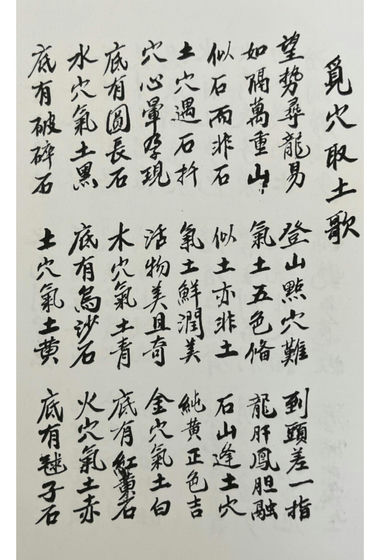 覓穴取土歌
望勢尋龍易 登山點穴難 到頭差一指
如隔萬重山 氣土五色俻 龍肝鳳胆融
似石而非石 似土亦非土 石山逢土穴
土穴遇石扦 氣土鮮潤美 純黄正色吉
穴心暈孕現 活物美且奇 金穴氣土白
底有圓長石 水穴氣土青 底有紅黄石
水穴氣土黑 底有烏沙石 火穴氣土赤
底有破碎石 土穴氣土黄 底有毬子石